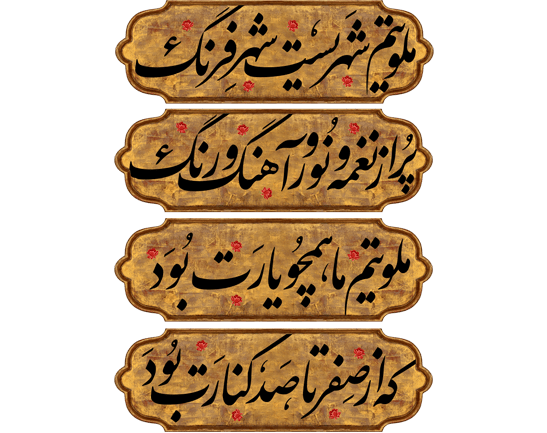 ملویتم شهریست شهر فِرنگ
پُر از نغمه و نُور و آهنگ و رنگ
ملویتم ما، همچُو یارَت بُوَد
که از صِفر تا صَد کنارَت بُوَدَ